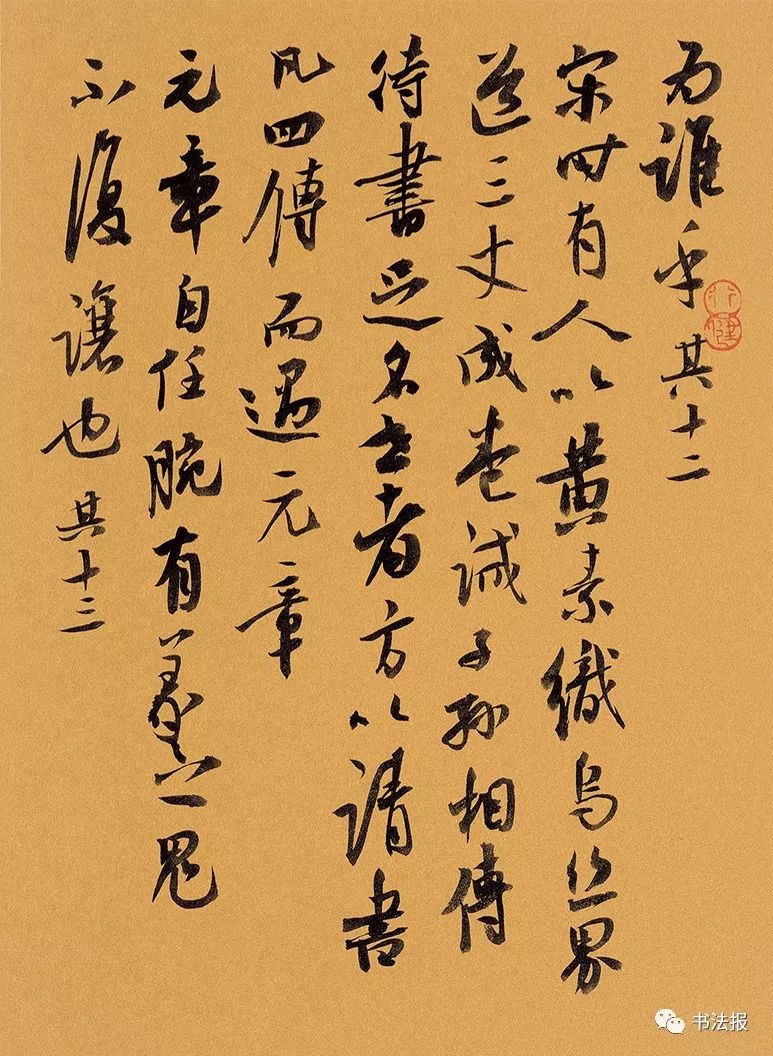 为誰乎 其十二
宋时有人以黄素織烏丝界
道三丈成卷诫子孙相傳
待書足名世者方以請書
凡四傳而遇元章
元章自任腕有羲之鬼
不復讓也 其十三
行健
书法报